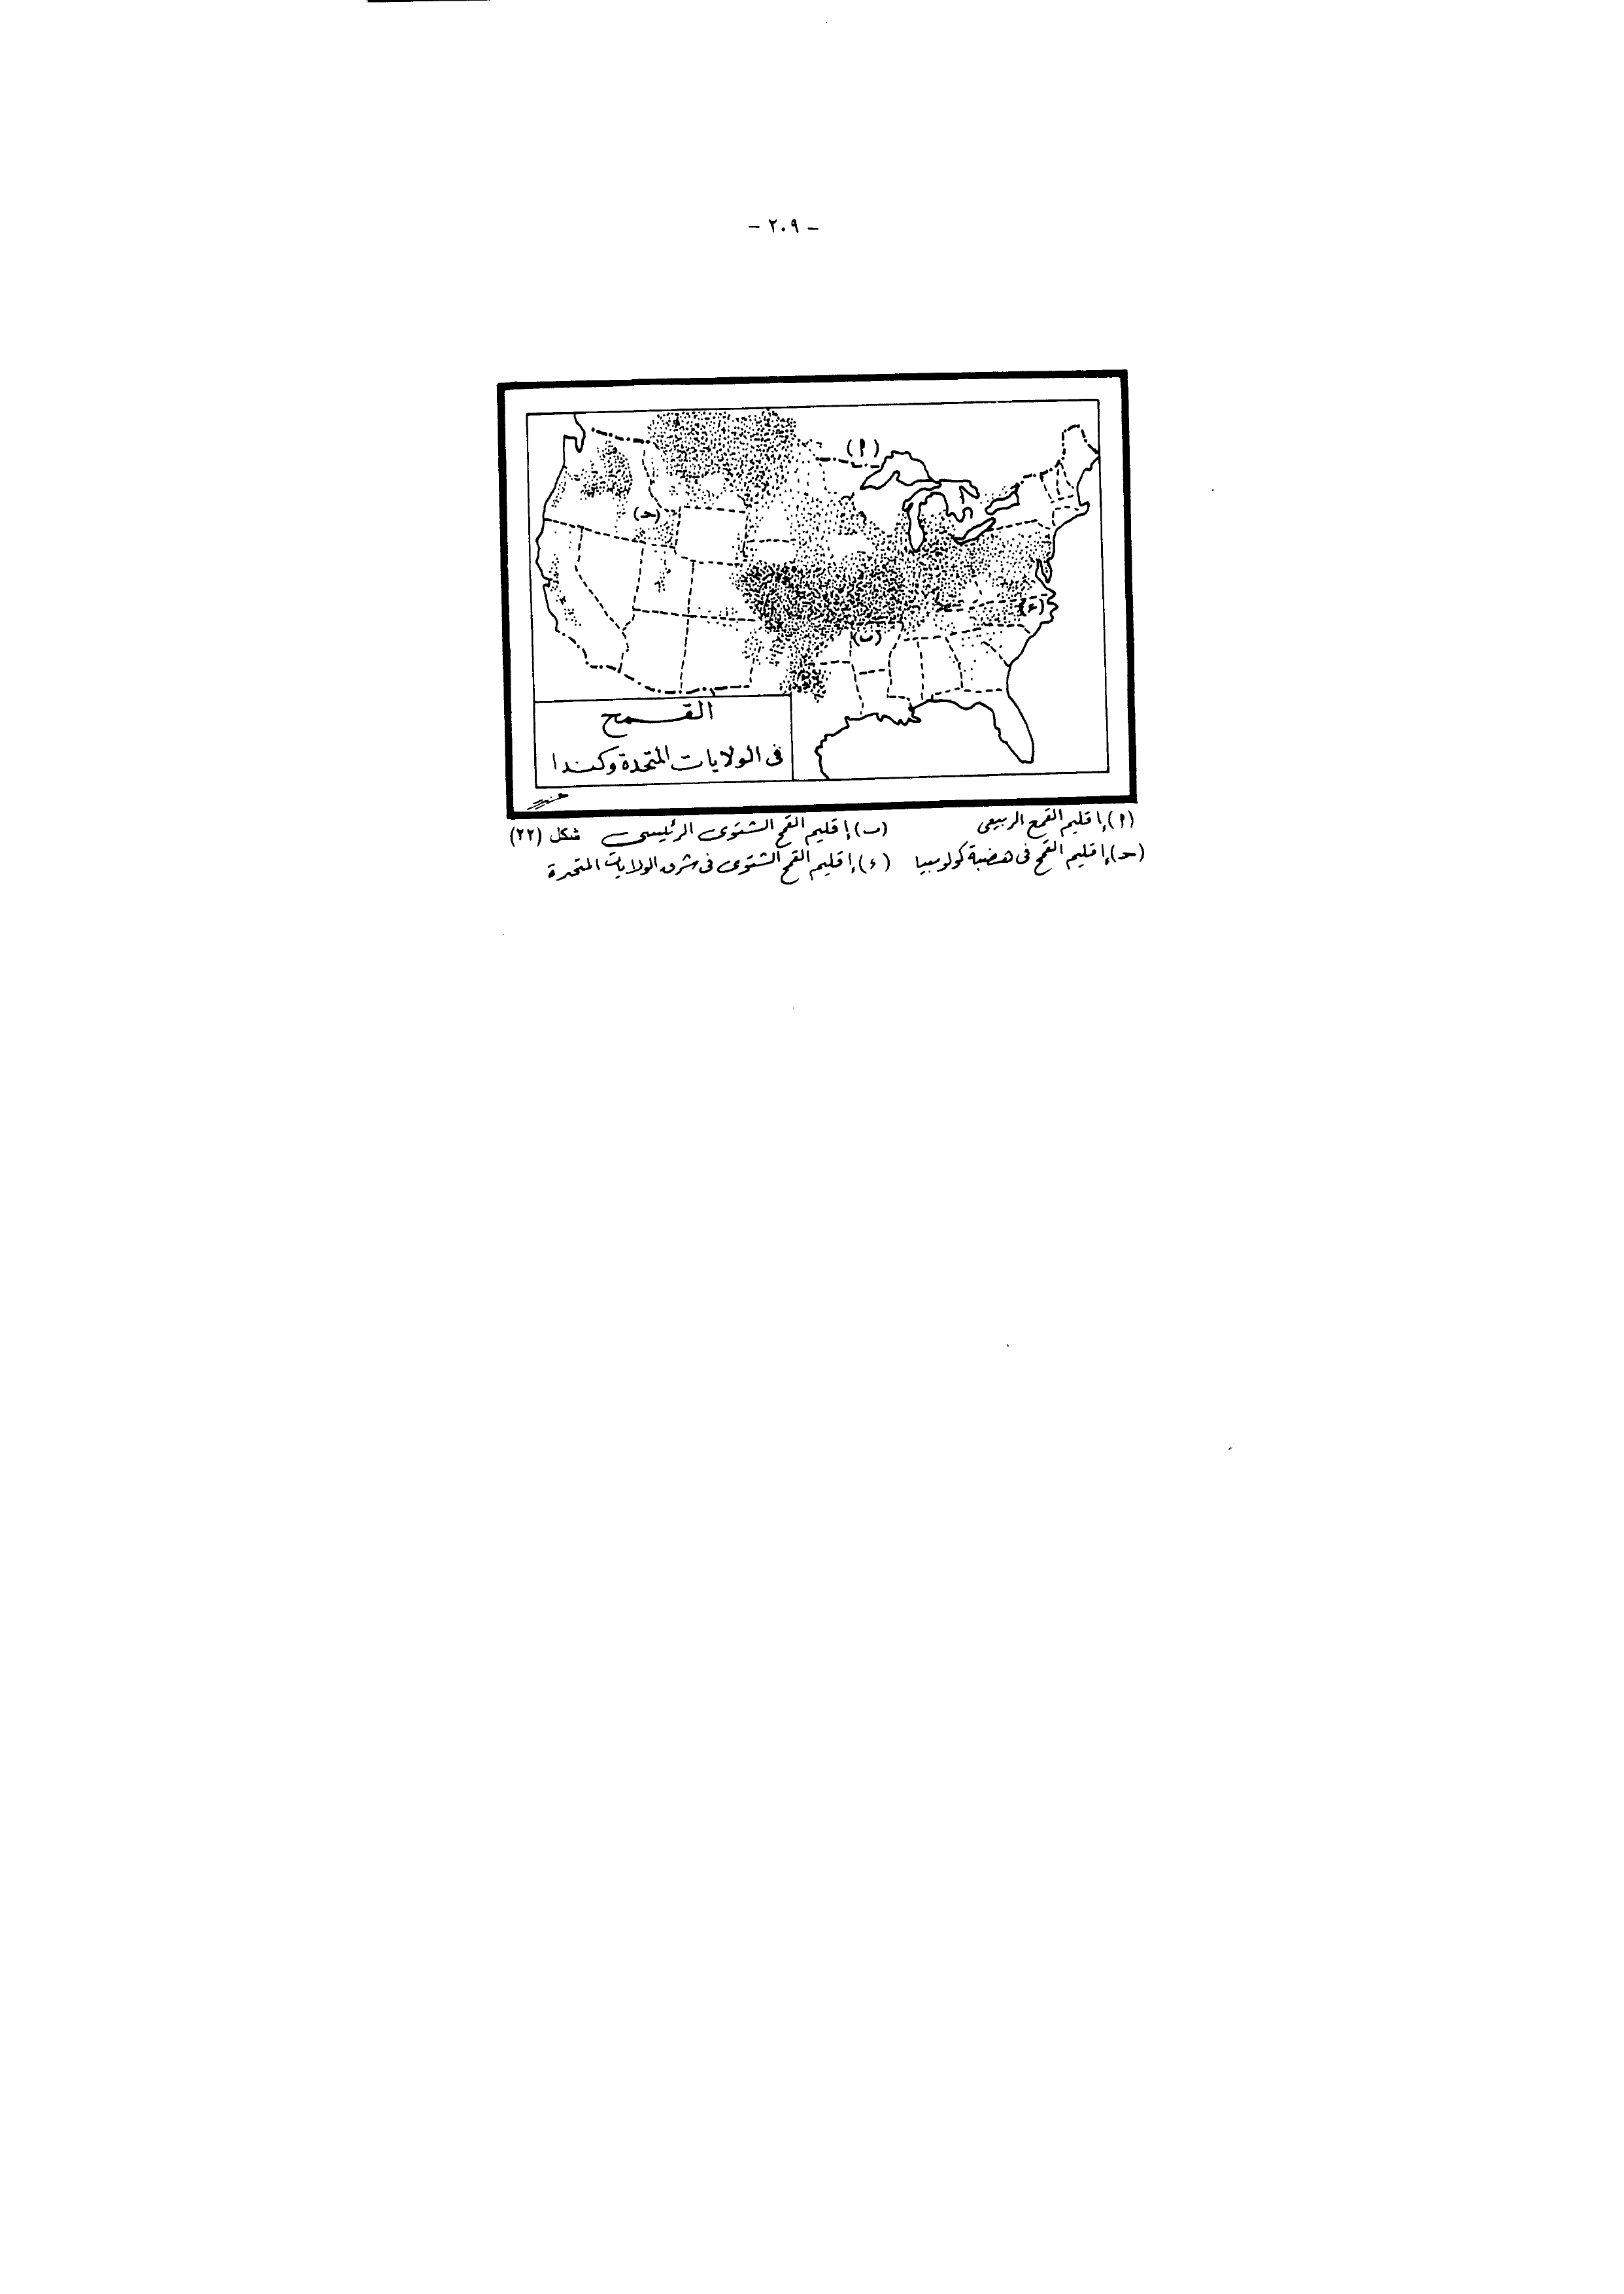 - ٢٠٩ -
(ا)
(حـ)
(ء)
(ب)
القمح
فى الولايات المتحدة وكندا
(ا) إقليم القمح الربيعى (ب) إقليم القمح الشتوى الرئيسى شكل (٢٢)
(حـ) إقليم القمح فى هضبة كولومبيا (ء) إقليم القمح الشتوى فى شرق الولايات المتحدة